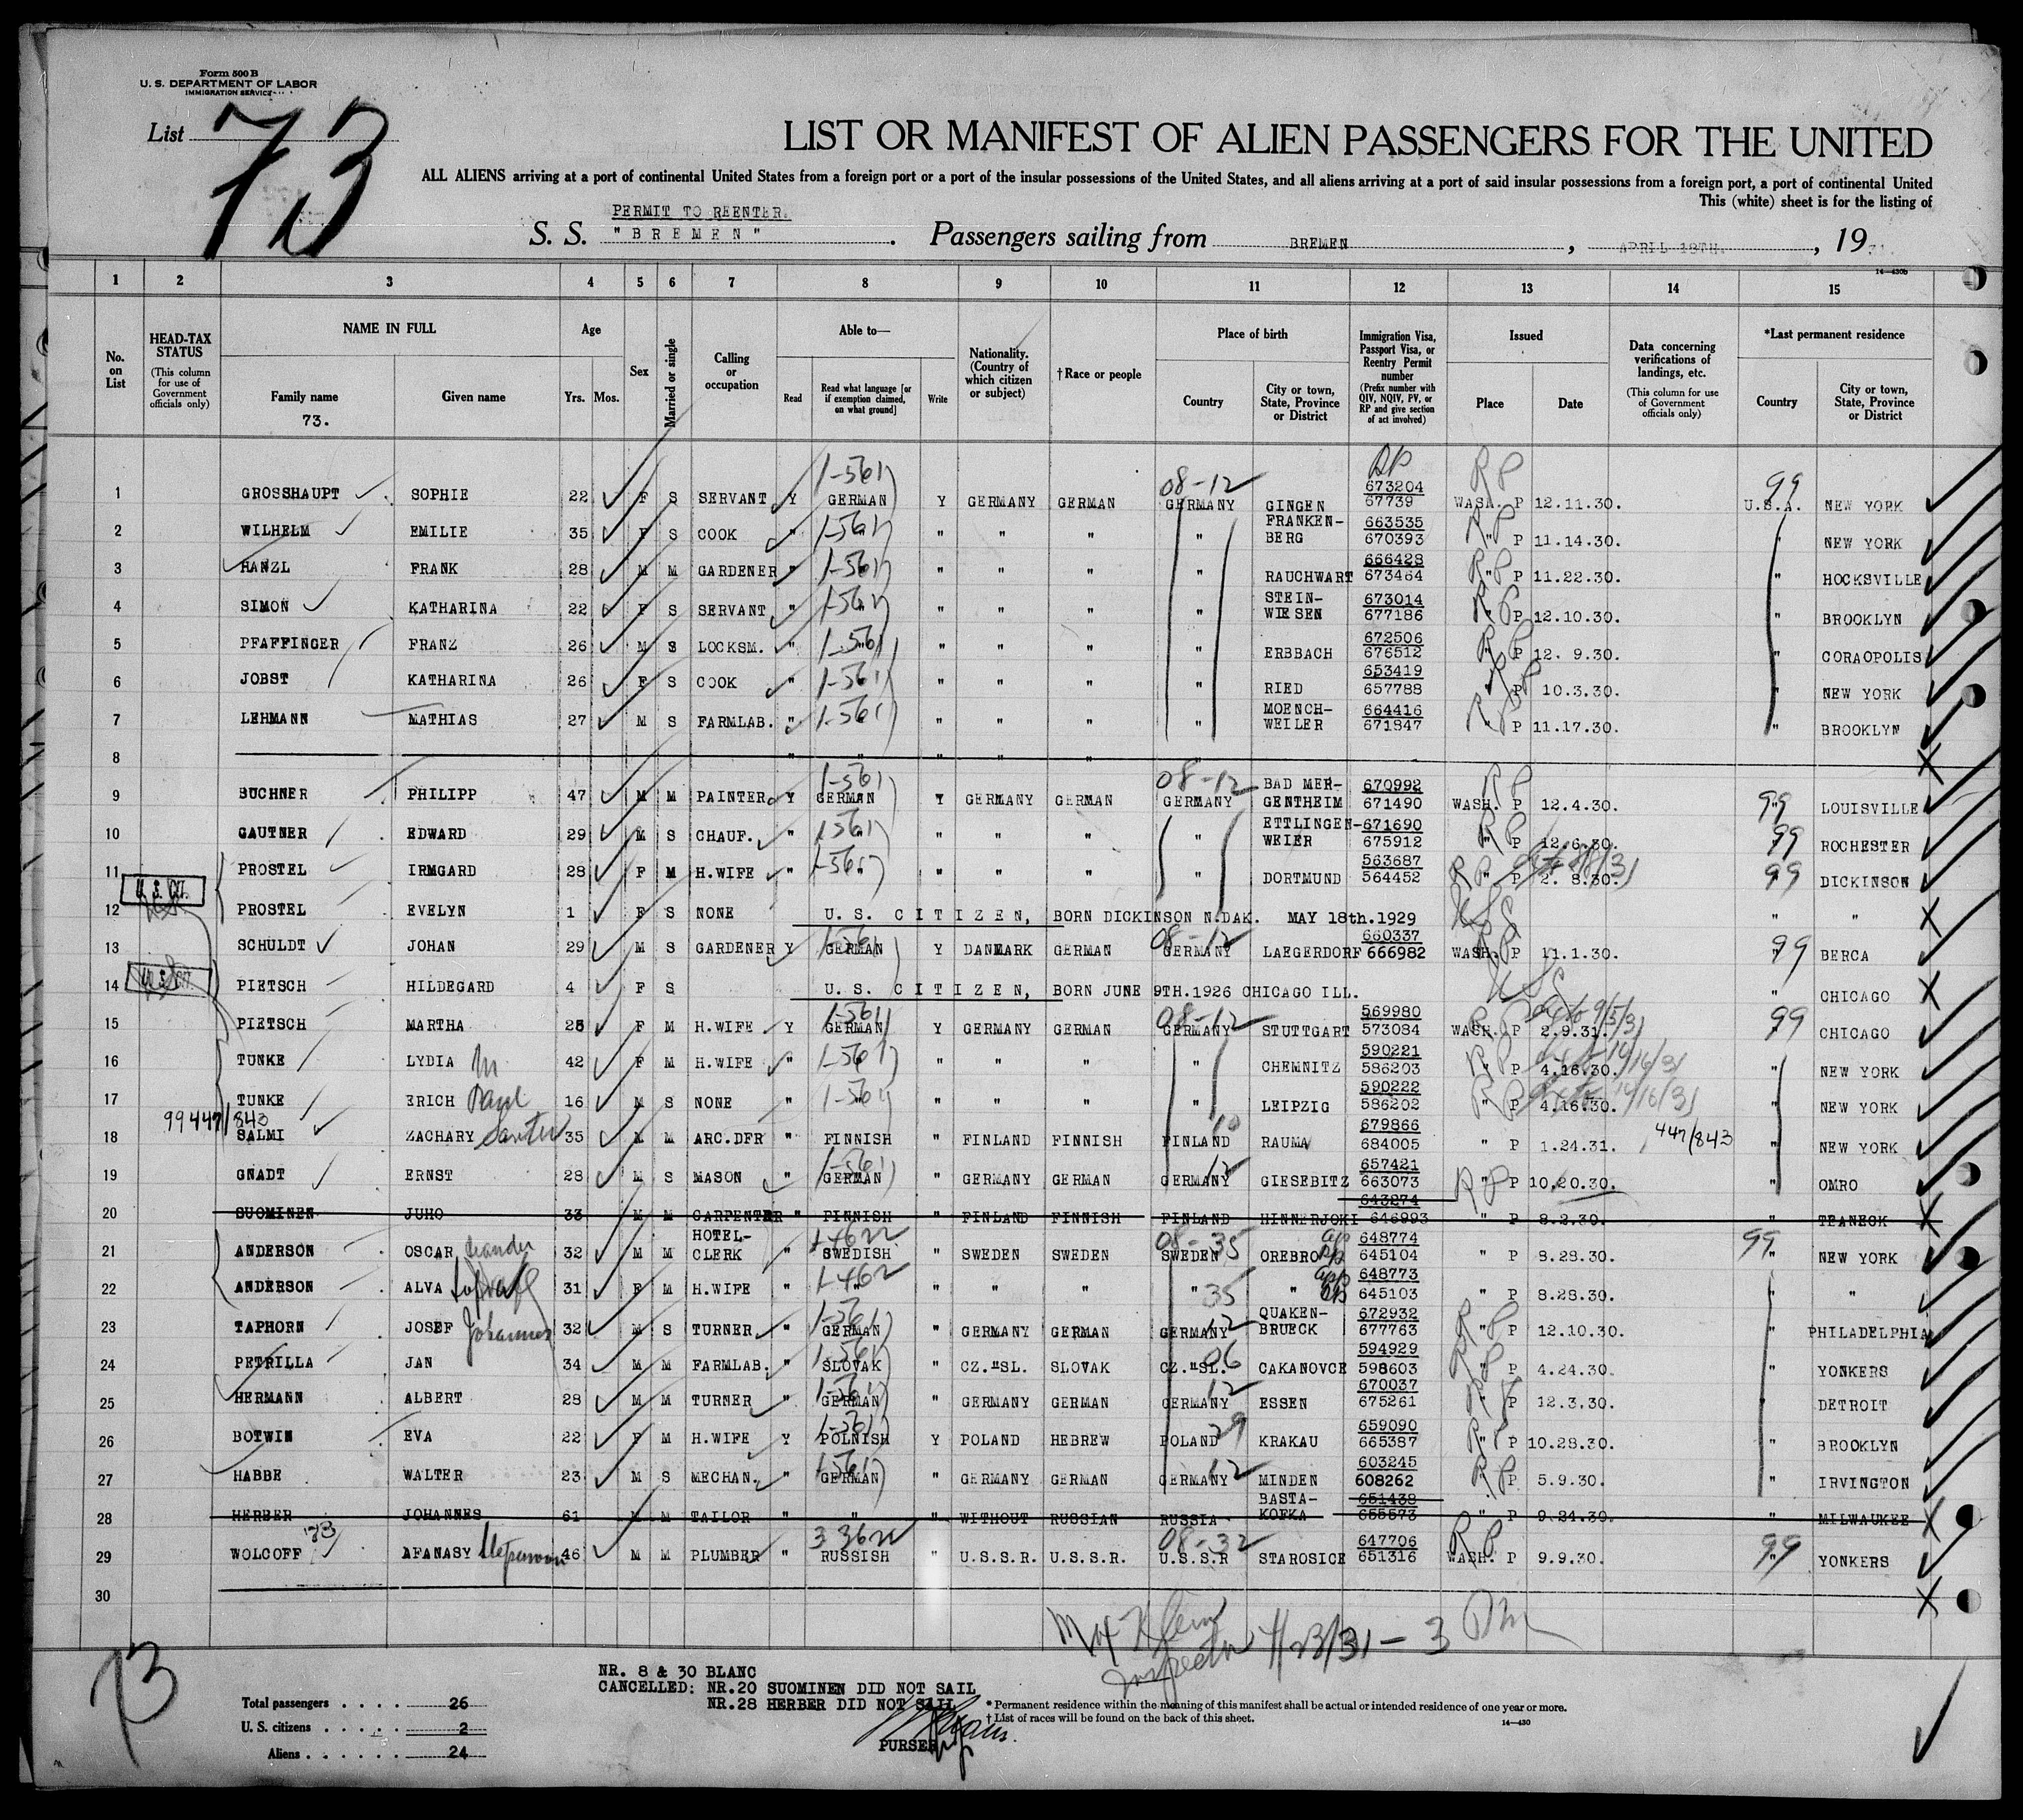 Form 500 B
U. S. DEPARTMENT OF LABOR
IMMIGRATION SERVICE
List 73
LIST OR MANIFEST OF ALIEN PASSENGERS FOR THE UNITED
ALL ALIENS arriving at a port of continental United States from a foreign port or a port of the insular possessions of the United States, and all aliens arriving at a port of said insular possessions from a foreign port, a port of continental United
This (white) sheet is for the listing of
PERMIT TO REENTER.
S. S. "BREMEN". Passengers sailing from BREMEN, APRIL 18TH., 1931.
14—430b
1 2 3 4 5 6 7 8 9 10 11 12 13 14 15
No. on List
HEAD-TAX STATUS (This column for use of Government officials only)
NAME IN FULL Family name Given name
73.
Age Yrs. Mos.
Sex
Married or single
Calling or occupation
Able to— Read Read what language [or if exemption claimed, on what ground] Write
Nationality. (Country of which citizen or subject)
†Race or people
Place of birth Country City or town, State, Province or District
Immigration Visa, Passport Visa, or Reentry Permit number (Prefix number with QIV, NQIV, PV, or RP and give section of act involved)
Issued Place Date
Data concerning verifications of landings, etc. (This column for use of Government officials only)
*Last permanent residence Country City or town, State, Province or District
1 GROSSHAUPT SOPHIE 22 F S SERVANT Y 1-561 GERMAN Y GERMANY GERMAN 08-12 GERMANY GINGEN RP 673204 67739 RP WASH. P 12.11.30. 99 U.S.A. NEW YORK
2 WILHELM EMILIE 35 F S COOK " 1-561 " " " " " FRANKEN- BERG 663535 670393 RP " P 11.14.30. " NEW YORK
3 HANZL FRANK 28 M M GARDENER " 1-561 " " " " " RAUCHWART 666428 673464 RP " P 11.22.30. " HOCKSVILLE
4 SIMON KATHARINA 22 F S SERVANT " 1-561 " " " " " STEIN- WIESEN 673014 677186 RP " P 12.10.30. " BROOKLYN
5 PFAFFINGER FRANZ 26 M S LOCKSM. " 1-561 " " " " " ERBBACH 672506 676512 RP " P 12. 9.30. " CORAOPOLIS
6 JOBST KATHARINA 26 F S COOK " 1-561 " " " " " RIED 653419 657788 RP " P 10.3.30. " NEW YORK
7 LEHMANN MATHIAS 27 M S FARMLAB. " 1-561 " " " " " MOENCH- WEILER 664416 671847 RP " P 11.17.30. " BROOKLYN
8 " " " " "
9 BUCHNER PHILIPP 47 M M PAINTER Y 1-561 GERMAN Y GERMANY GERMAN 08-12 GERMANY BAD MER- GENTHEIM 670992 671490 RP WASH. P 12.4.30. 99 " LOUISVILLE
10 GAUTNER EDWARD 29 M S CHAUF. " 1-561 " " " " " ETTLINGEN- WEIER 671690 675912 RP " P 12.6.30. 99 " ROCHESTER
11 PROSTEL IRMGARD 28 F M H.WIFE " 1-561 " " " " " DORTMUND 563687 564452 RP " P 2. 8.30. 8/8/31 99 " DICKINSON
U. S. CIT.
12 PROSTEL EVELYN 1 F S NONE U. S. CITIZEN, BORN DICKINSON N.DAK. MAY 18th.1929 " "
13 SCHULDT JOHAN 29 M S GARDENER Y 1-561 GERMAN Y DANMARK GERMAN 08-12 GERMANY LAEGERDORF 660337 666982 WASH. P 11.1.30. 99 " BERCA
14 PIETSCH HILDEGARD 4 F S U. S. CITIZEN, BORN JUNE 9TH.1926 CHICAGO ILL. " CHICAGO
15 PIETSCH MARTHA 28 F M H.WIFE Y 1-561 GERMAN Y GERMANY GERMAN 08-12 GERMANY STUTTGART 569980 573084 WASH. P 2.9.31. 99 " CHICAGO
16 TUNKE LYDIA M 42 F M H.WIFE " 1-561 " " " " " CHEMNITZ 590221 586203 RP " P 4.16.30. " NEW YORK
17 TUNKE ERICH Paul 16 M S NONE " 1-561 " " " " LEIPZIG 590222 586202 RP " P 4.16.30. " NEW YORK
99 447/843
18 SALMI ZACHARY 35 M M ARC.DFR " FINNISH " FINLAND FINNISH FINLAND RAUMA 679866 684005 " P 1.24.31. 447/843 " NEW YORK
19 GNADT ERNST 28 M S MASON " 1-561 GERMAN " GERMANY GERMAN 12 GERMANY GIESEBITZ 657421 663073 RP " P 10.20.30. " OMRO
20 SUOMINEN JUHO 33 M M CARPENTER " FINNISH " FINLAND FINNISH FINLAND HINNERJOKI 643274 646993 " P 8.2.30. " TEANECK
21 ANDERSON OSCAR 32 M M HOTEL- CLERK " 1-4622 SWEDISH " SWEDEN SWEDEN 08-35 SWEDEN OREBRO 648774 645104 " P 8.28.30. 99 NEW YORK
22 ANDERSON ALVA 31 F M H.WIFE " 1-462 " " " " " 35 " 648773 645103 " P 8.28.30. " "
23 TAPHORN JOSEF Johannes 32 M S TURNER " 1-561 GERMAN " GERMANY GERMAN 12 GERMANY QUAKEN- BRUECK 672932 677763 RP " P 12.10.30. " PHILADELPHIA
24 PETRILLA JAN 34 M M FARMLAB. " 1-561 SLOVAK " CZ."SL. SLOVAK 06 CZ."SL. CAKANOVCE 594929 598603 RP " P 4.24.30. " YONKERS
25 HERMANN ALBERT 28 M M TURNER " 1-561 GERMAN " GERMANY GERMAN 12 GERMANY ESSEN 670037 675261 RP " P 12.3.30. " DETROIT
26 BOTWIN EVA 22 F M H.WIFE Y 1-561 POLNISH Y POLAND HEBREW 29 POLAND KRAKAU 659090 665387 RP " P 10.28.30. " BROOKLYN
27 HABBE WALTER 23 M S MECHAN. " 1-561 GERMAN " GERMANY GERMAN 12 GERMANY MINDEN 603245 608262 RP " P 5.9.30. " IRVINGTON
28 HERBER JOHANNES 61 M M TAILOR " " " WITHOUT RUSSIAN RUSSIA BASTA- KOFKA 651438 655573 " P 9.24.30. " MILWAUKEE
29 WOLCOFF AFANASY 46 M M PLUMBER " 3 3622 RUSSISH " U.S.S.R. U.S.S.R. 08-32 U.S.S.R STAROSICE 647706 651316 RP WASH. P 9.9.30. 99 " YONKERS
30
Max Klein Inspector 4/23/31 - 3
73
NR. 8 & 30 BLANC
CANCELLED: NR.20 SUOMINEN DID NOT SAIL
NR.28 HERBER DID NOT SAIL
PURSER
Total passengers . . . . 26
U. S. citizens . . . . . 2
Aliens . . . . . . 24
* Permanent residence within the meaning of this manifest shall be actual or intended residence of one year or more.
† List of races will be found on the back of this sheet.
14—430